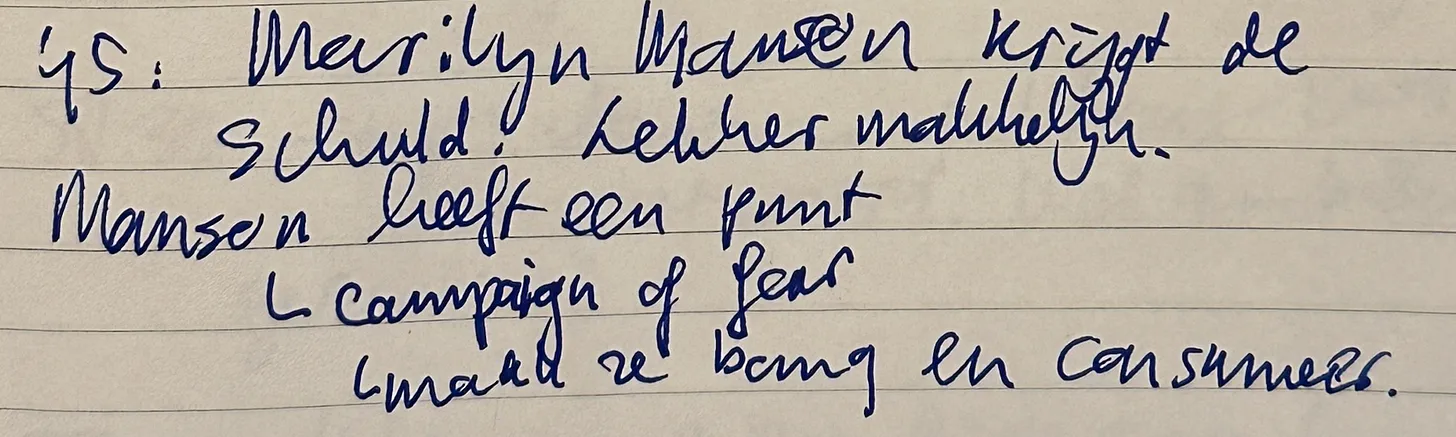 '45: Marilyn Manson krijgt de
schuld! Lekker makkelijk.
Manson heeft een punt
↳ campaign of fear
↳ maak ze bang en consumeer.